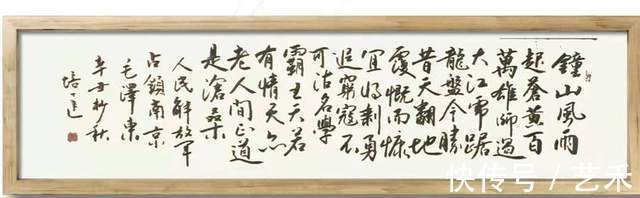 鐘山風雨
起蒼黃百
萬雄師過
大江虎踞
龍盤今勝
昔天翻地
覆慨而慷
宜將剩勇
追窮寇不
可沽名學
霸王天若
有情天亦
老人間正道
是滄桑
人民解放军
占領南京
毛澤東
辛丑杪秋
快传号 / 艺禾